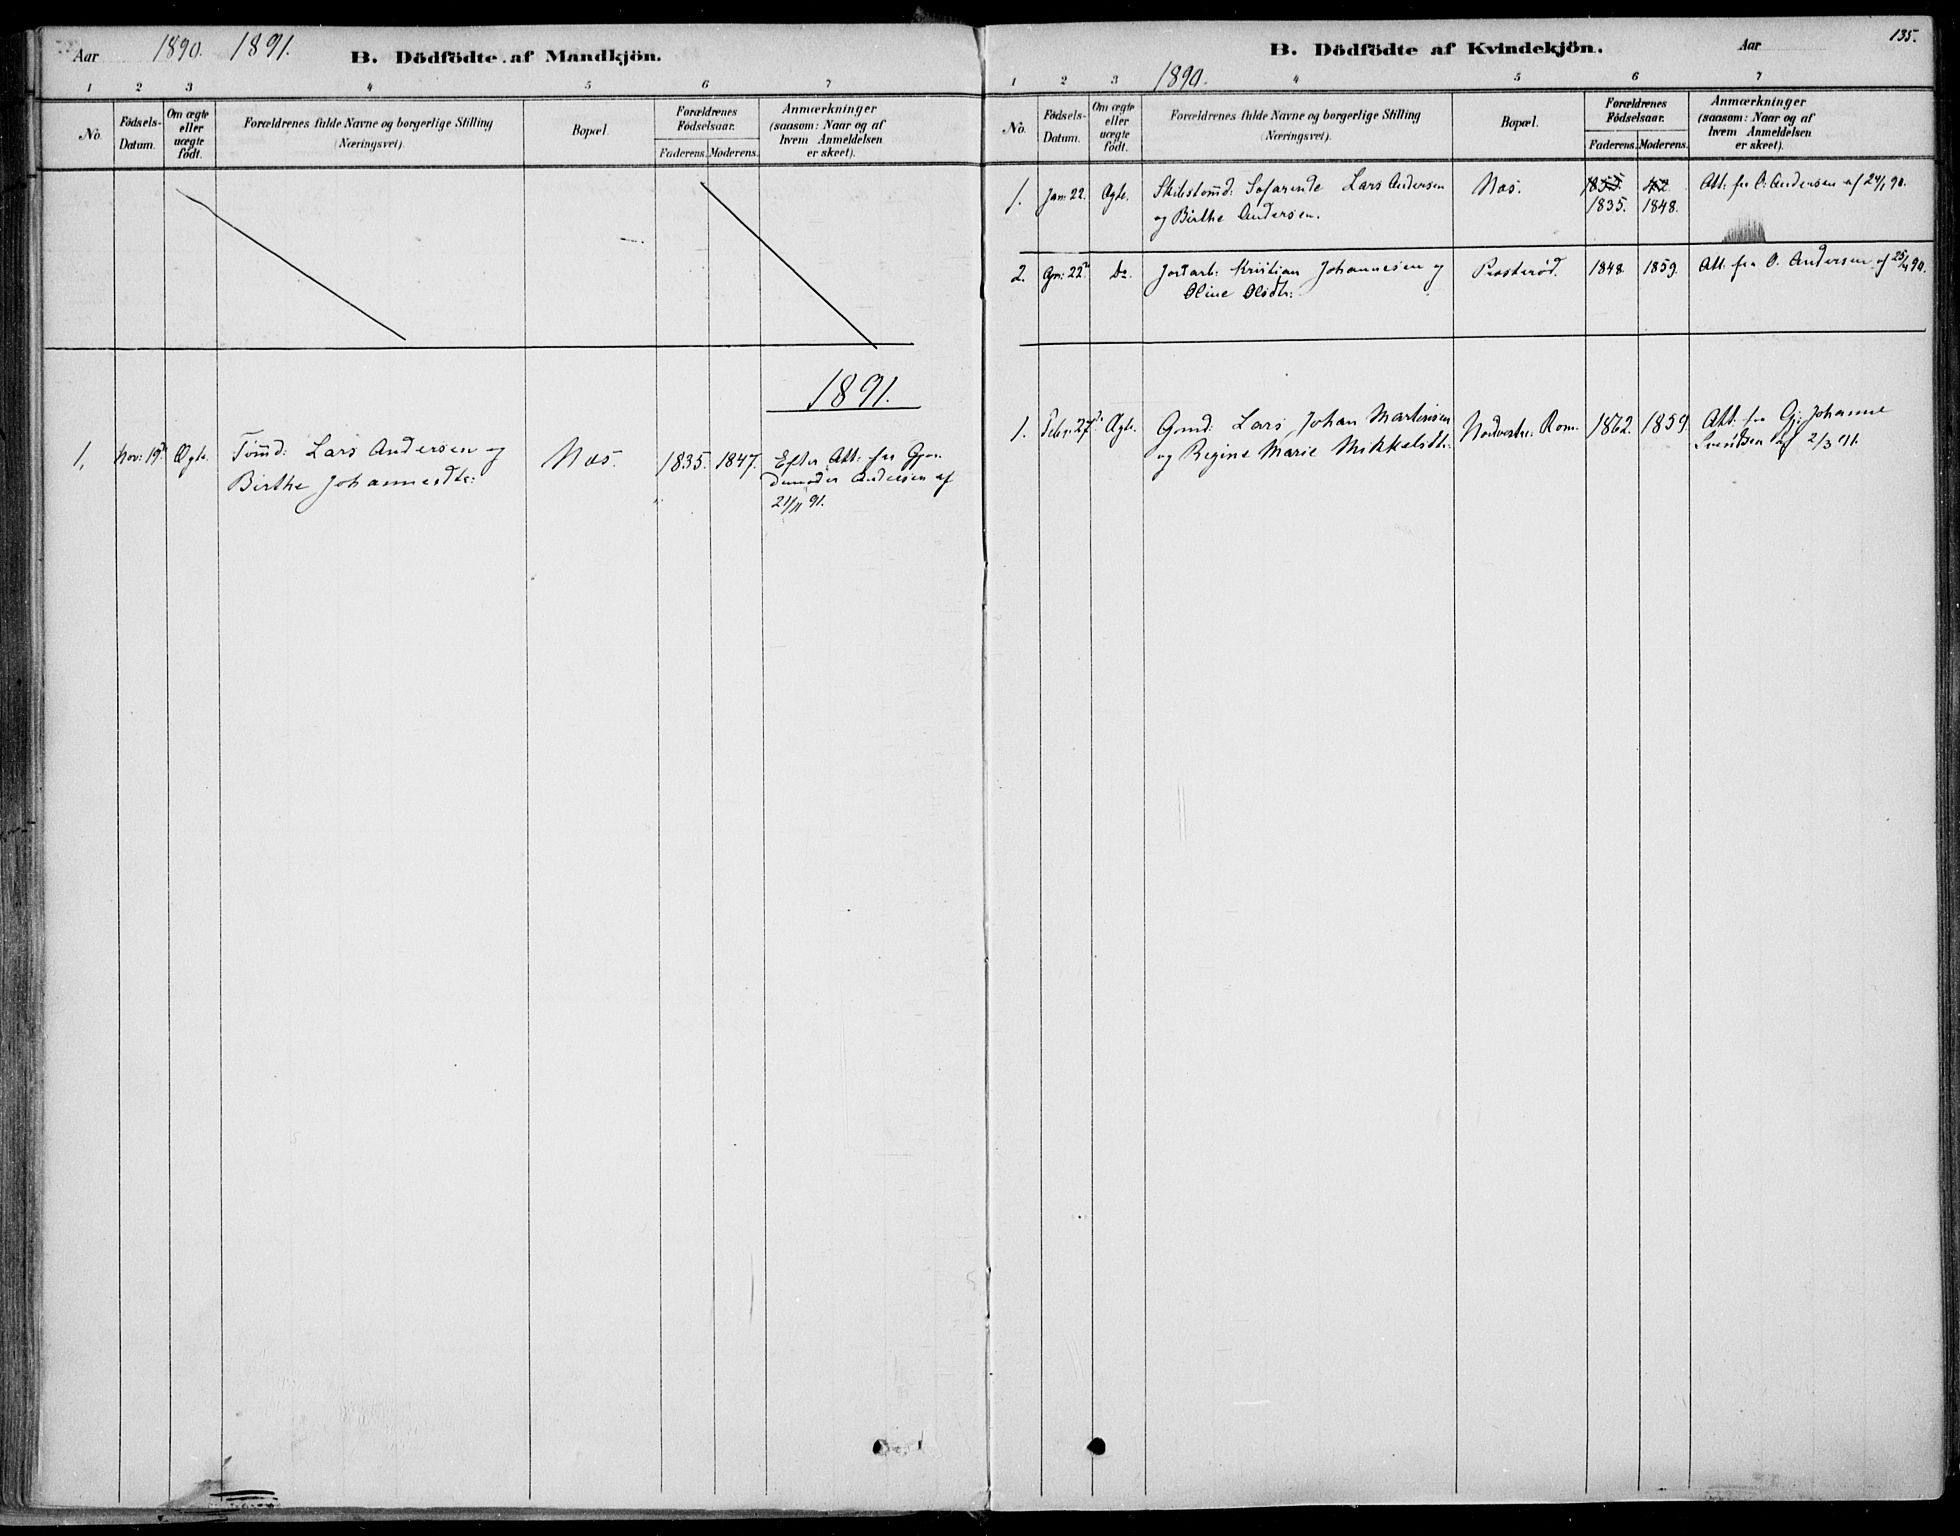 Aar 1890. 1891. B. Dödfödte af Mandkjön.
1 2 3 4 5 6 7
No. Födsels-Datum. Om ægte eller uægte födt. Forældrenes fulde Navne og borgerlige Stilling (Næringsvei). Bopæl. Forældrenes Födselsaar. Faderens. Moderens. Anmærkninger (saasom: Naar og af hvem Anmeldelsen er skeet).
1891.
1, Nov: 19d Ægte. Tømd: Lars Andersen og Næs. 1835. 1847. Efter Att: fra Gjor
Birthe Johannesdtr: demoder Andersen af
21/11 91.
135.
B. Dödfödte af Kvindekjön. Aar
1890.
1 2 3 4 5 6 7
No. Födsels-Datum. Om ægte eller uægte födt. Forældrenes fulde Navne og borgerlige Stilling (Næringsvei). Bopæl. Forældrenes Födselsaar. Faderens. Moderens. Anmærkninger (saasom: Naar og af hvem Anmeldelsen er skeet).
1. Jan: 22. Ægte. Skibstømd: Søfarende Lars Andersen Næs. 1855. 42 Att: fra O. Andersen af 24/1 90.
og Birthe Andersen. 1835. 1848.
2. Apr: 22d Do. Jordarb: Kristian Johannesen og Prosterød. 1848. 1859. Att. fra O. Andersen af 25/4 90.
Oline Olsdtr:
1. Febr: 27d Ægte. Grmd: Lars Johan Martinsen Nordvestre Rom. 1862. 1859. Att. fra Gj: Johanne
og Regine Marie Mikkelsdtr: Svendsen af 2/3 91.